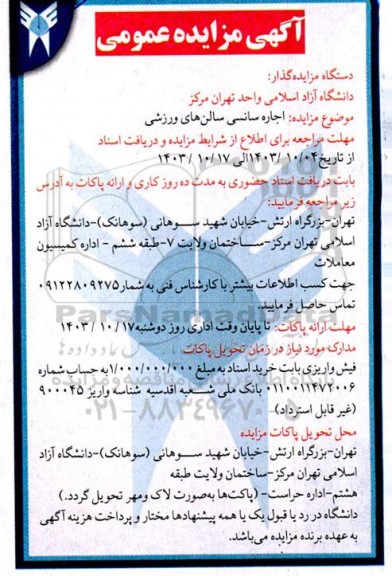 آگهی مزایده عمومی
دستگاه مزایده‌گذار:
دانشگاه آزاد اسلامی واحد تهران مرکز
موضوع مزایده: اجاره سانسی سالن‌های ورزشی
مهلت مراجعه برای اطلاع از شرایط مزایده و دریافت اسناد
از تاریخ ۱۴۰۳/۱۰/۰۴ الی ۱۴۰۳/۱۰/۱۷
بابت دریافت اسناد حضوری به مدت ده روز کاری و ارائه پاکات به آدرس
زیر مراجعه فرمایید:
تهران-بزرگراه ارتش-خیابان شهید سوهانی (سوهانک)-دانشگاه آزاد
اسلامی تهران مرکز-ساختمان ولایت ۷-طبقه ششم - اداره کمیسیون
معاملات
جهت کسب اطلاعات بیشتر با کارشناس فنی به شماره ۰۹۱۲۲۸۰۹۲۷۵
تماس حاصل فرمایید
ParsNamadData
مهلت ارائه پاکات: تا پایان وقت اداری روز دوشنبه ۱۴۰۳/۱۰/۱۷
مدارک مورد نیاز در زمان تحویل پاکات
فیش واریزی بابت خرید اسناد به مبلغ ۱/۰۰۰/۰۰۰ به حساب شماره
۰۱۱۰۰۱۱۴۷۲۰۰۶ بانک ملی شعبه اقدسیه شناسه واریز ۹۰۰۰۴۵
(غیر قابل استرداد)
۰۲۱-۸۸۳۴۹۶۷۰
محل تحویل پاکات مزایده
تهران-بزرگراه ارتش-خیابان شهید سوهانی (سوهانک)-دانشگاه آزاد
اسلامی تهران مرکز-ساختمان ولایت طبقه
هشتم-اداره حراست- (پاکت‌ها به‌صورت لاک ومهر تحویل گردد.)
دانشگاه در رد یا قبول یک یا همه پیشنهادها مختار و پرداخت هزینه آگهی
به عهده برنده مزایده می‌باشد.